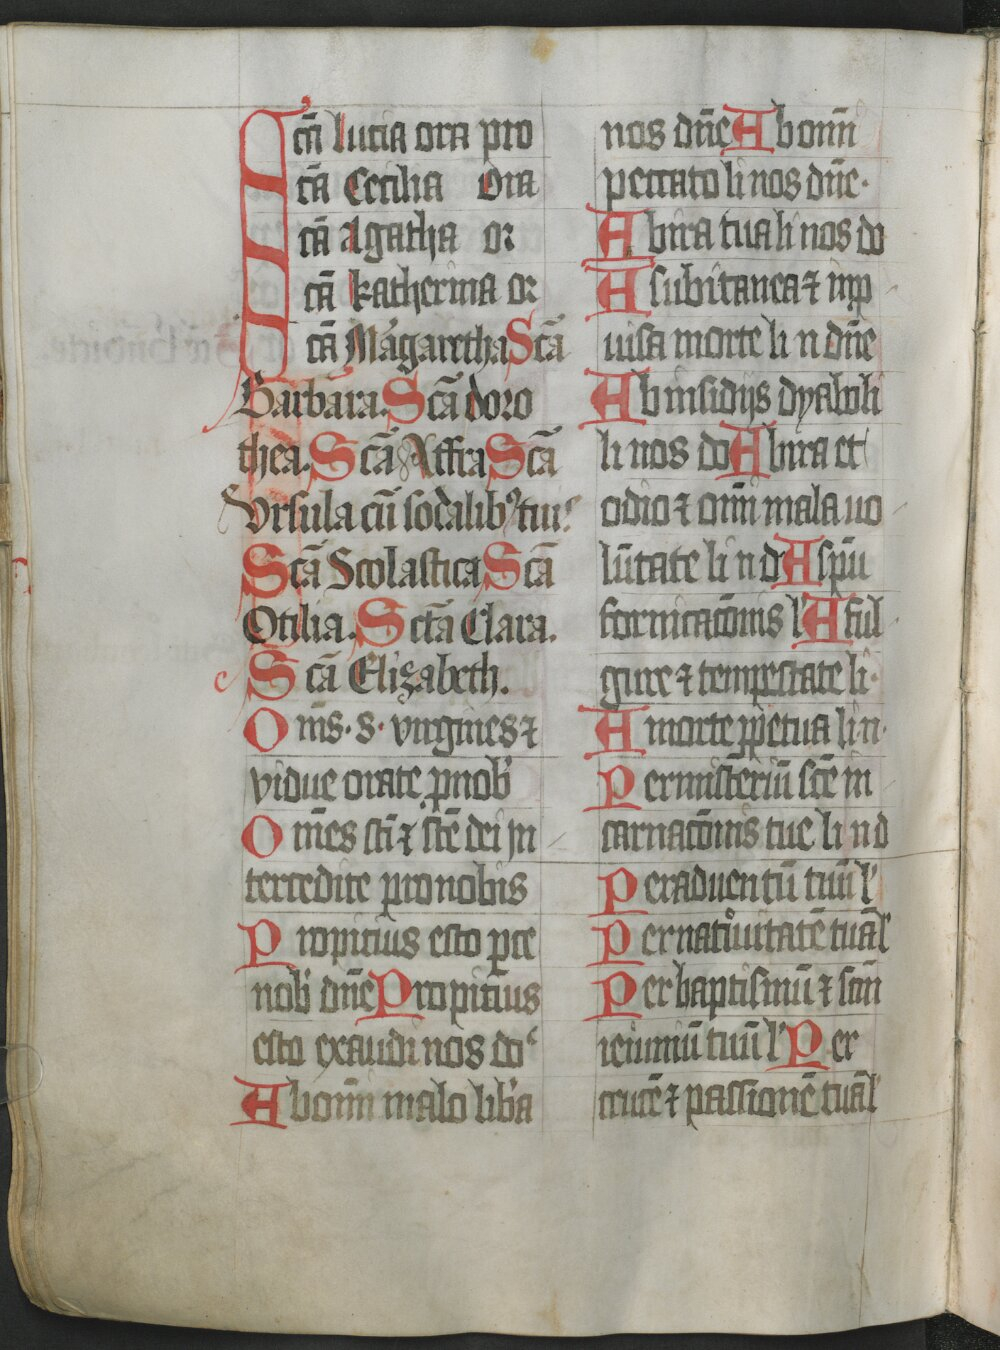 Scā lucia ora pro
Scā Cecilia Ora
Scā Agatha or
Scā katherina or
Scā Margaretha Scā
Barbara. Scā doro
thea. Scā Affra Scā
Vrsula cū sodalibꝰ tuis
Scā Scolastica Scā
Otilia. Sctā Clara.
Scā Elizabeth.
Oms̄. s. virgines ⁊
vidue orate ꝓnob̄
Om̄es sc̄i ⁊ sc̄e dei in
tercedite pro nobis
Propicius esto ꝑce
nob̄ dn̄e Propicius
esto exaudi nos do
Ab om̄i malo lib̄a
nos dn̄e Ab om̄i
peccato li nos dn̄e.
Ab ira tua li nos do
A subitanea ⁊ inp
uisa morte li n dn̄e
Ab insidijs dyaboli
li nos do Ab ira et
odio ⁊ om̄i mala uo
lūtate li n d A spū
fornicacōnis l' A ful
gure ⁊ tempestate li.
A morte ꝑpetua li n.
Per misteriū sc̄e in
carnacōnis tue li n d
Per aduentū tuū l'
Per natiuitatē tuā l'
Per baptismū ⁊ scm̄
ieiuniū tuū l' Per
crucē ⁊ passionē tuā l'